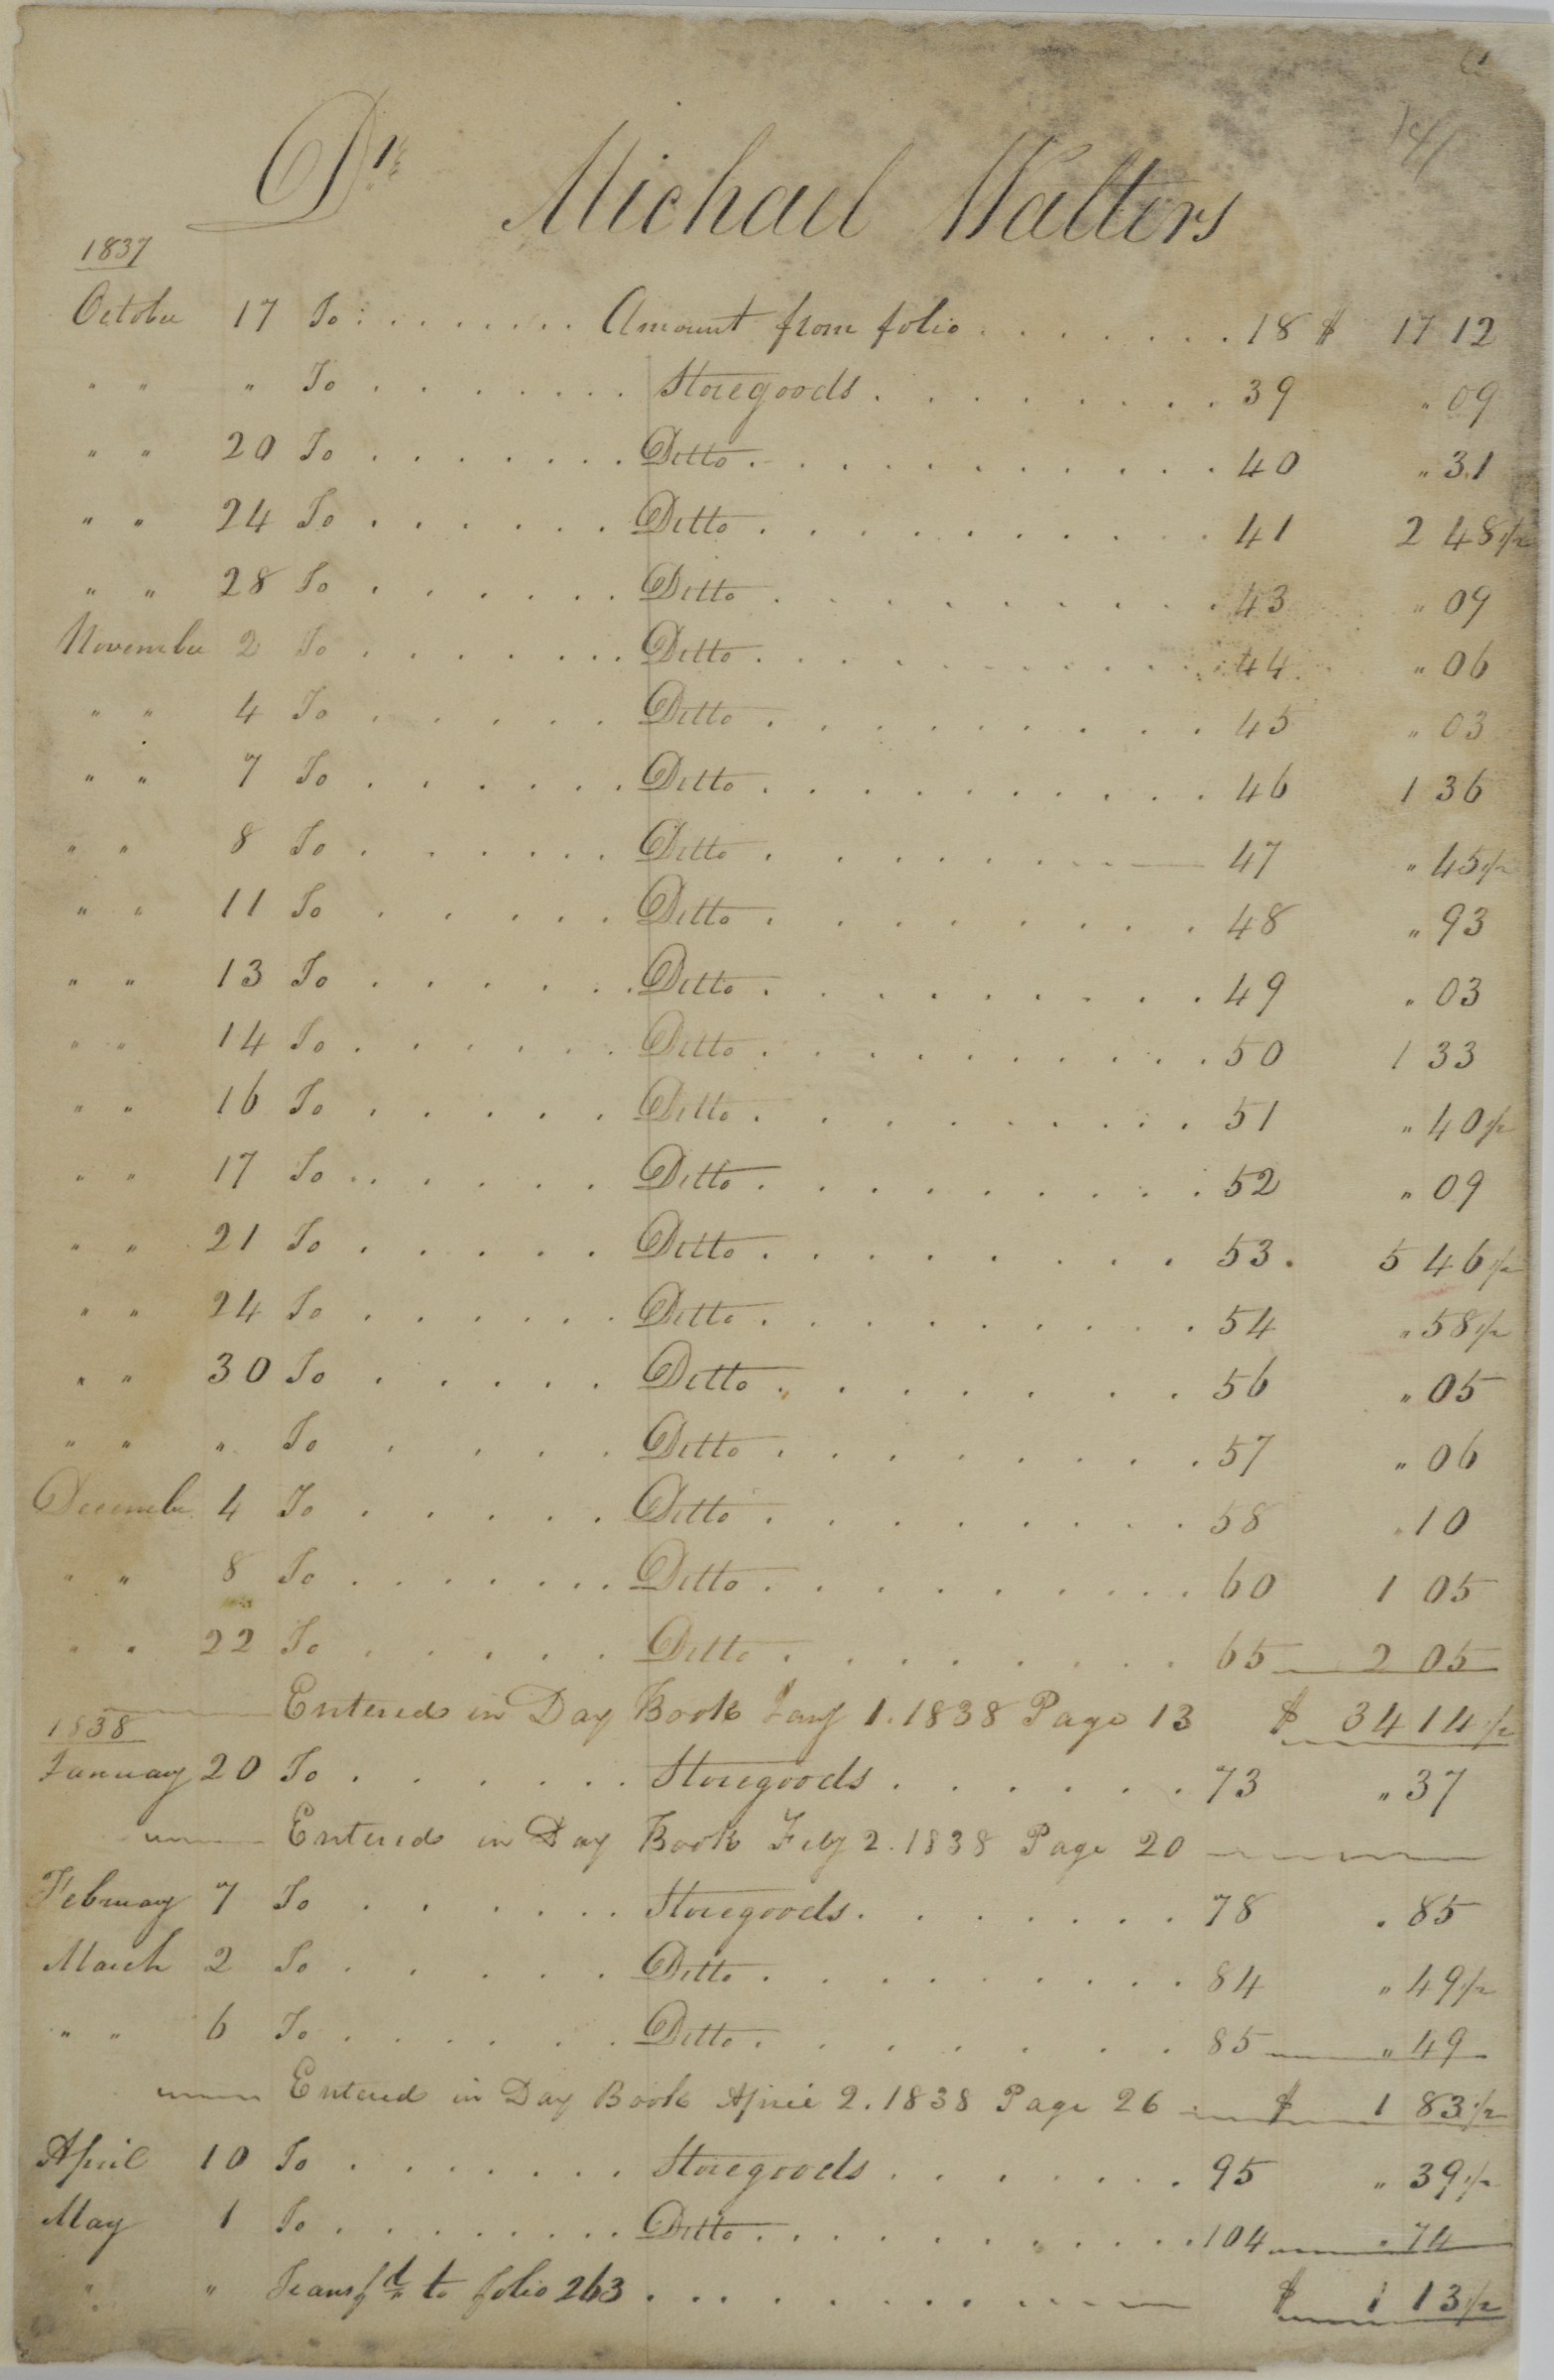 Dr Michael Walters
1837
October 17 To . . . . . . . . Amount from folio . . . . . . . 18 $ 17 12
" " " To . . . . . . . . Storegoods . . . . . . . . 39 " 09
" " 20 To . . . . . . . Ditto . . . . . . . . . . . 40 " 31
" " 24 To . . . . . . Ditto . . . . . . . . . . 41 2 48 1/2
" " 28 To . . . . . . Ditto . . . . . . . . . . 43 " 09
November 2 To . . . . . . . Ditto . . . . . . . . . . 44 " 06
" " 4 To . . . . . Ditto . . . . . . . . . 45 " 03
" " 7 To . . . . . . Ditto . . . . . . . . . . 46 1 36
" " 8 To . . . . . . Ditto . . . . . . . . 47 " 45 1/2
" " 11 To . . . . . Ditto . . . . . . . . . 48 " 93
" " 13 To . . . . . . Ditto . . . . . . . . . 49 " 03
" " 14 To . . . . . . Ditto . . . . . . . . . . 50 1 33
" " 16 To . . . . . Ditto . . . . . . . . . 51 " 40 1/2
" " 17 To . . . . . . Ditto . . . . . . . . . 52 " 09
" " 21 To . . . . . Ditto . . . . . . . . . 53 . 5 46 1/2
" " 24 To . . . . . . Ditto . . . . . . . . . 54 " 58 1/2
" " 30 To . . . . . Ditto . . . . . . . . 56 " 05
" " " To . . . . Ditto . . . . . . . . . 57 " 06
Decembr 4 To . . . . . Ditto . . . . . . . . . 58 " 10
" " 8 To . . . . . . . Ditto . . . . . . . . . . 60 1 05
" " 22 To . . . . . Ditto . . . . . . . . . 65 2 05
Entered in Day Book Jany 1. 1838 Page 13 $ 34 14 1/2
1838
January 20 To . . . . . . Storegoods . . . . . . 73 " 37
Entered in Day Book Feby 2. 1838 Page 20
February 7 To . . . . . . Storegoods . . . . . . . 78 . 85
March 2 To . . . . . Ditto . . . . . . . . . 84 " 49 1/2
" " 6 To . . . . . . Ditto . . . . . . . 85 " 49
Entered in Day Book April 2. 1838 Page 26 $ 1 83 1/2
April 10 To . . . . . . . Storegoods . . . . . . . 95 " 39 1/2
May 1 To . . . . . . . . Ditto . . . . . . . . . . . 104 . 74
" " Transfd to folio 263 . . . . . . . . $ 1 13 1/2